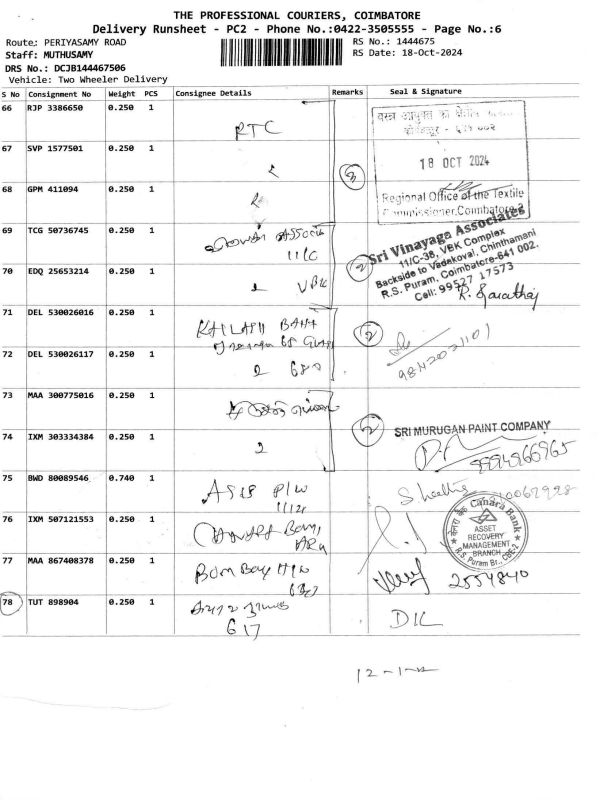 THE PROFESSIONAL COURIERS, COIMBATORE
Delivery Runsheet - PC2 - Phone No.:0422-3505555 - Page No.:6
Route: PERIYASAMY ROAD
RS No.: 1444675
Staff: MUTHUSAMY
RS Date: 18-Oct-2024
DRS No.: DCJB144467506
Vehicle: Two Wheeler Delivery
S No Consignment No Weight PCS Consignee Details Remarks Seal & Signature
66 RJP 3386650 0.250 1
RTC
67 SVP 1577501 0.250 1
18 OCT 2024
3
68 GPM 411094 0.250 1
Regional Office of the Textile
Commissioner, Coimbatore-2
69 TCG 50736745 0.250 1
11/C
Sri Vinayaga Associates
11/C-38, VBK Complex
Backside to Vadakovai, Chinthamani
R.S. Puram, Coimbatore-641 002.
Cell: 99527 17573
70 EDQ 25653214 0.250 1
2 VBK
2
71 DEL 530026016 0.250 1
2
9842021101
72 DEL 530026117 0.250 1
2 680
73 MAA 300775016 0.250 1
2
SRI MURUGAN PAINT COMPANY
74 IXM 303334384 0.250 1
2
75 BWD 80089546 0.740 1
76 IXM 507121553 0.250 1
Canara Bank
ASSET
RECOVERY
MANAGEMENT
BRANCH
R.S. Puram Br., CBE-2
77 MAA 867408378 0.250 1
2554840
78 TUT 898904 0.250 1
617
DIL